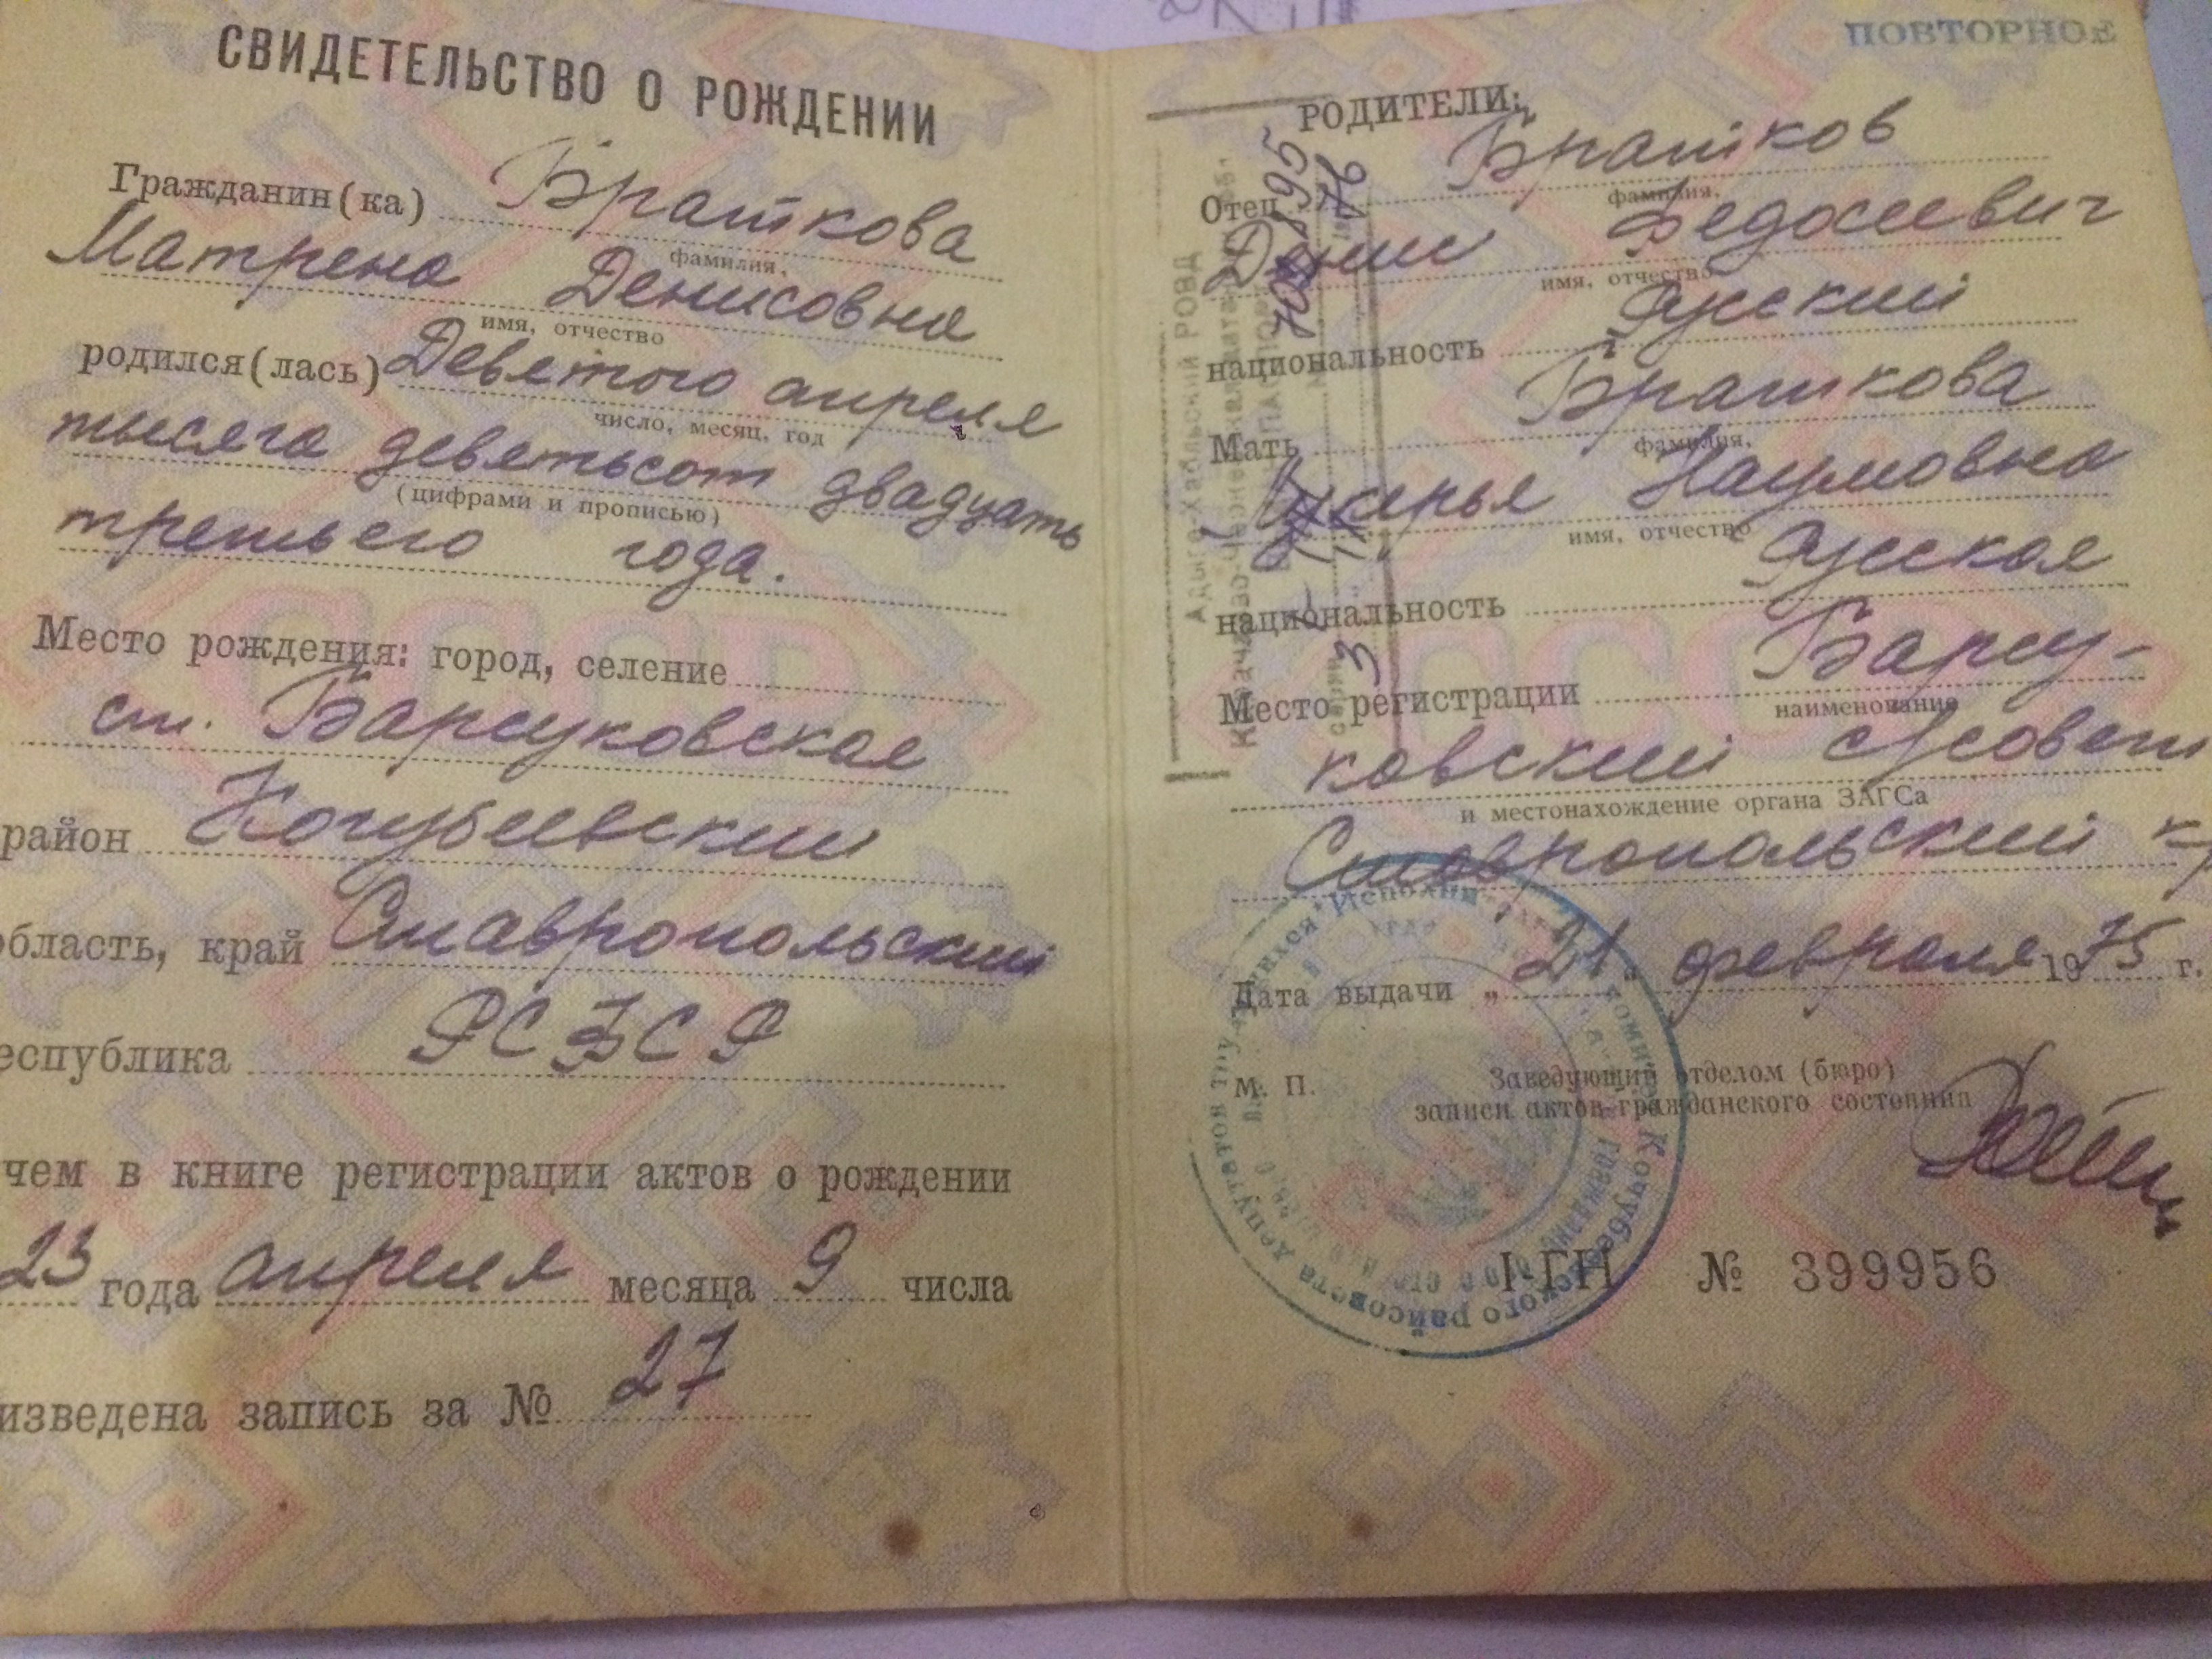 СВИДЕТЕЛЬСТВО О РОЖДЕНИИ
Гражданин(ка) Браткова
фамилия,
Матрена Денисовна
имя, отчество
родился(лась) Девятого апреля
число, месяц, год
тысяча девятьсот двадцать
(цифрами и прописью)
третьего года.
Место рождения: город, селение
ст. Барсуковская
район Кочубеевский
область, край Ставропольский
еспублика РСФСР
чем в книге регистрации актов о рождении
23 года апреля месяца 9 числа
изведена запись за № 27
ПОВТОРНОЕ
РОДИТЕЛИ:
Отец Братков
фамилия,
Денис Федосеевич
имя, отчество
национальность Русский
Мать Браткова
фамилия,
Лукерья Наумовна
имя, отчество
национальность Русская
Место регистрации Барсу-
наименование
ковский с/совет
и местонахождение органа ЗАГСа
Ставропольский
Дата выдачи „21" февраля 1975 г.
М. П.
Заведующий отделом (бюро)
записи актов гражданского состояния
I-ГН № 399956
Адыге-Хабльский РОВД
Кочубеевского райсовета депутатов трудящихся